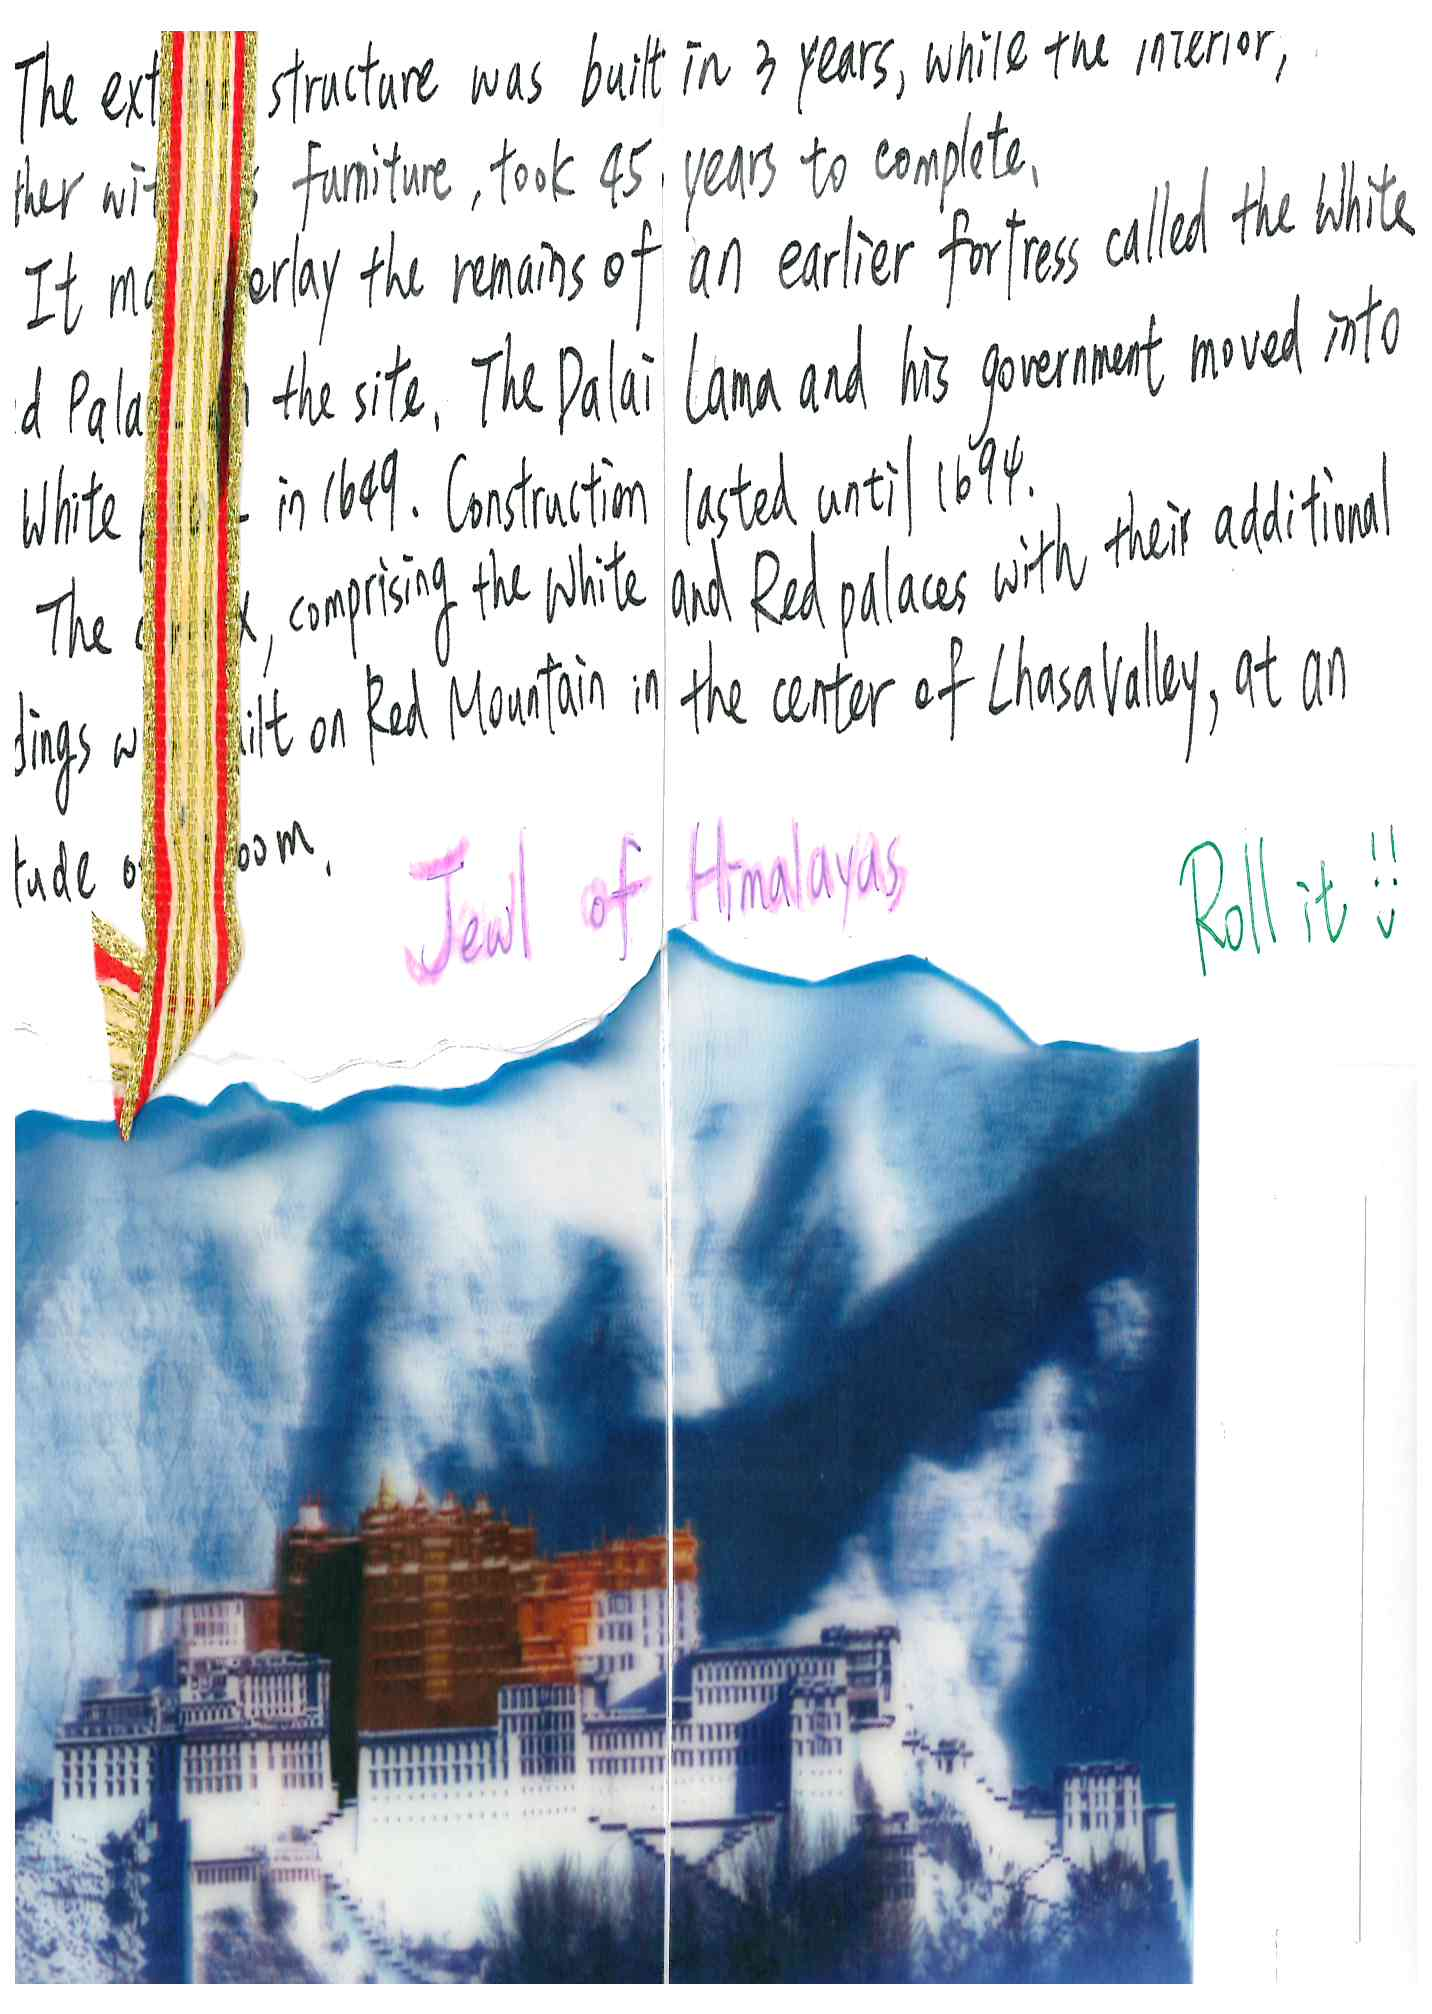 The ext structure was built in 3 years, while the interior,
ther wi s furniture, took 45 years to complete.
It ma erlay the remains of an earlier fortress called the White
d Pala n the site. The Dalai Lama and his government moved into
White in 1649. Construction lasted until 1694.
The x, comprising the White and Red palaces with their additional
dings w ilt on Red Mountain in the center of Lhasa Valley, at an
tude o oom.
Jewl of Himalayas
Roll it !!